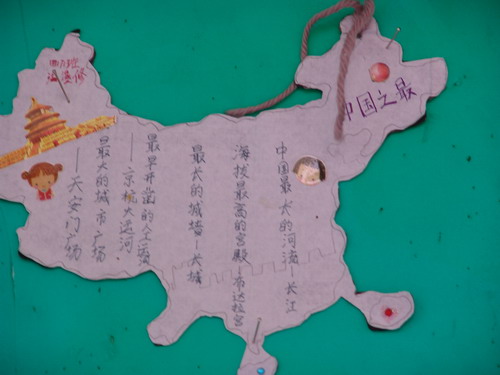 中国之最
中国最长的河流—长江
海拔最高的宫殿—布达拉宫
最长的城墙—长城
最早开凿的人工运河
——京杭大运河
最大的城市广场
——天安门广场